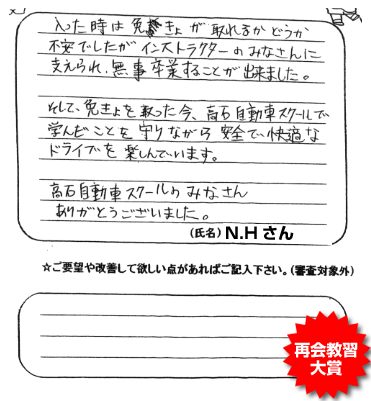 入った時は免きょが取れるかどうか
不安でしたがインストラクターのみなさんに
支えられ、無事卒業することが出来ました。
そして、免きょを取った今、高石自動車スクールで
学んだことを守りながら安全で、快適な
ドライブを楽しんでいます。
高石自動車スクールのみなさん
ありがとうございました。
(氏名) N.Hさん
☆ご要望や改善して欲しい点があればご記入下さい。(審査対象外)
再会教習
大賞